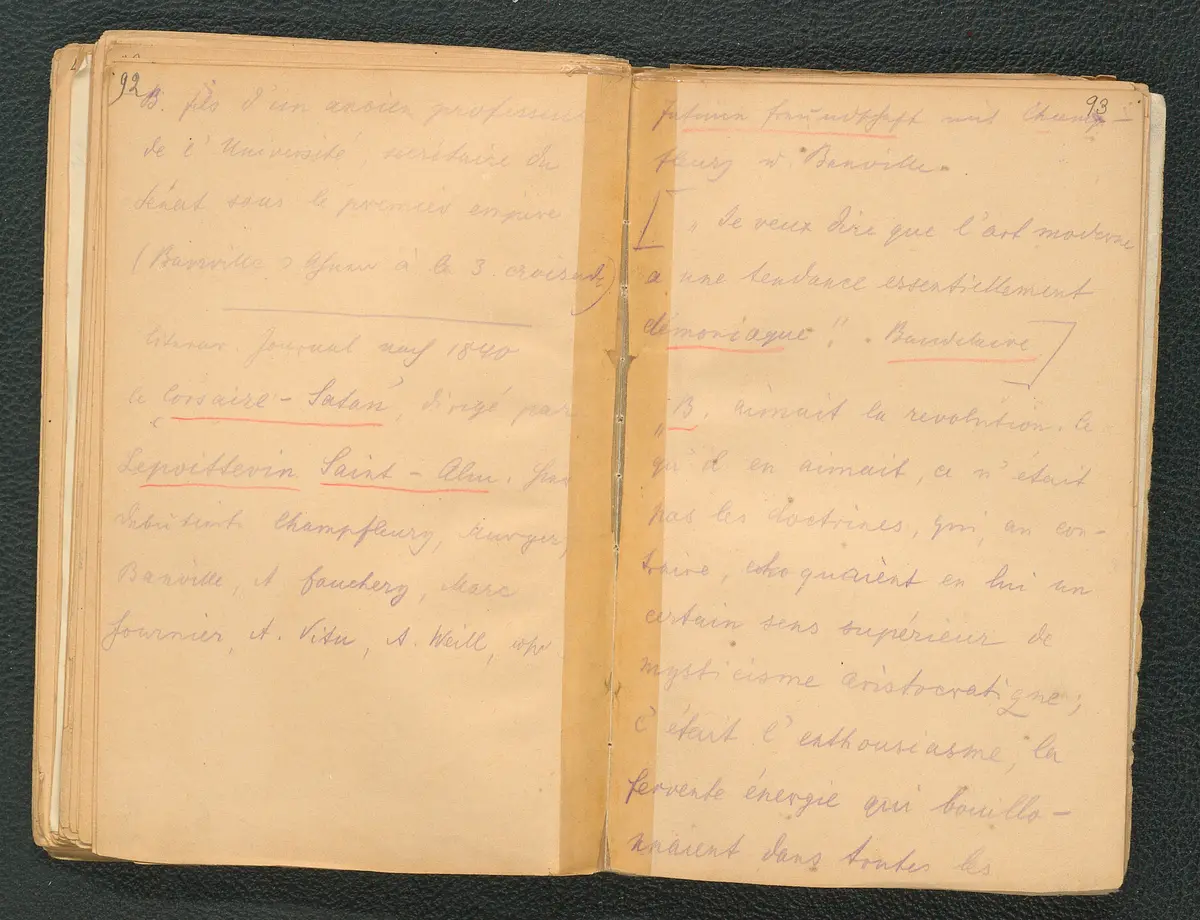 92
B. fils d'un ancien professeur
de l'Université secrétaire du
Sénat sous le premier empire
(Banville à la 3. croisade)
literar. Journal nach 1840
le Corsaire-Satan, dirigé par
Lepoittevin Saint-Alm.
debutirt Champfleury, Murger,
Banville, A Fauchery, Marc
Fournier, A. Vitu, A. Weill,
93
Intime Freundschaft mit Champ-
fleury u Banville.
[ „ Je veux dire que l'art moderne
a une tendance essentiellement
démoniaque". Baudelaire ]
„B. aimait la revolution. Ce
qu'il en aimait, ce n'était
pas les doctrines, qui, au con-
traire, choquaient en lui un
certain sens supérieur de
mysticisme aristocratique;
c'était l'enthousiasme, la
fervente énergie qui bouillo-
nnaient dans toutes les